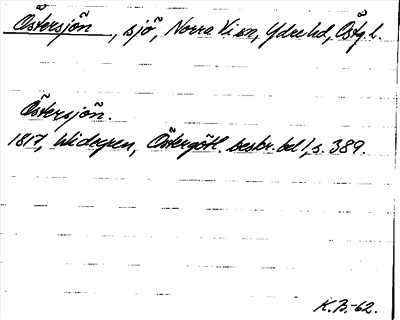 Östersjön, sjö, Norra Vi sn, Ydre hd, Östg. l.
Östersjön.
1817, Widegren, Östergötl. beskr. bd 1, s. 389.
K.B.-62.